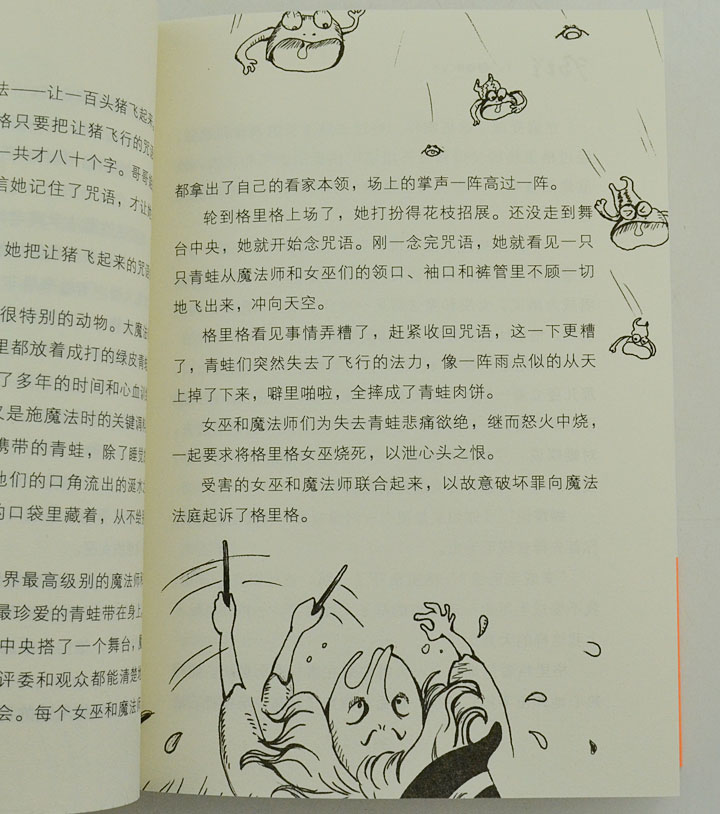 法——让一百头猪飞起来
格只要把让猪飞行的咒
一共才八十个字。哥哥
信她记住了咒语，才让
她把让猪飞起来的咒
很特别的动物。大魔法
里都放着成打的绿皮青
了多年的时间和心血
又是施魔法时的关键
携带的青蛙，除了睡觉
他们的口角流出的涎水
的口袋里藏着，从不给
界最高级别的魔法师
最珍爱的青蛙带在身上
中央搭了一个舞台，
评委和观众都能清楚地
会。每个女巫和魔法师
都拿出了自己的看家本领，场上的掌声一阵高过一阵。
轮到格里格上场了，她打扮得花枝招展。还没走到舞
台中央，她就开始念咒语。刚一念完咒语，她就看见一只
只青蛙从魔法师和女巫们的领口、袖口和裤管里不顾一切
地飞出来，冲向天空。
格里格看见事情弄糟了，赶紧收回咒语，这一下更糟
了，青蛙们突然失去了飞行的法力，像一阵雨点似的从天
上掉了下来，噼里啪啦，全摔成了青蛙肉饼。
女巫和魔法师们为失去青蛙悲痛欲绝，继而怒火中烧，
一起要求将格里格女巫烧死，以泄心头之恨。
受害的女巫和魔法师联合起来，以故意破坏罪向魔法
法庭起诉了格里格。